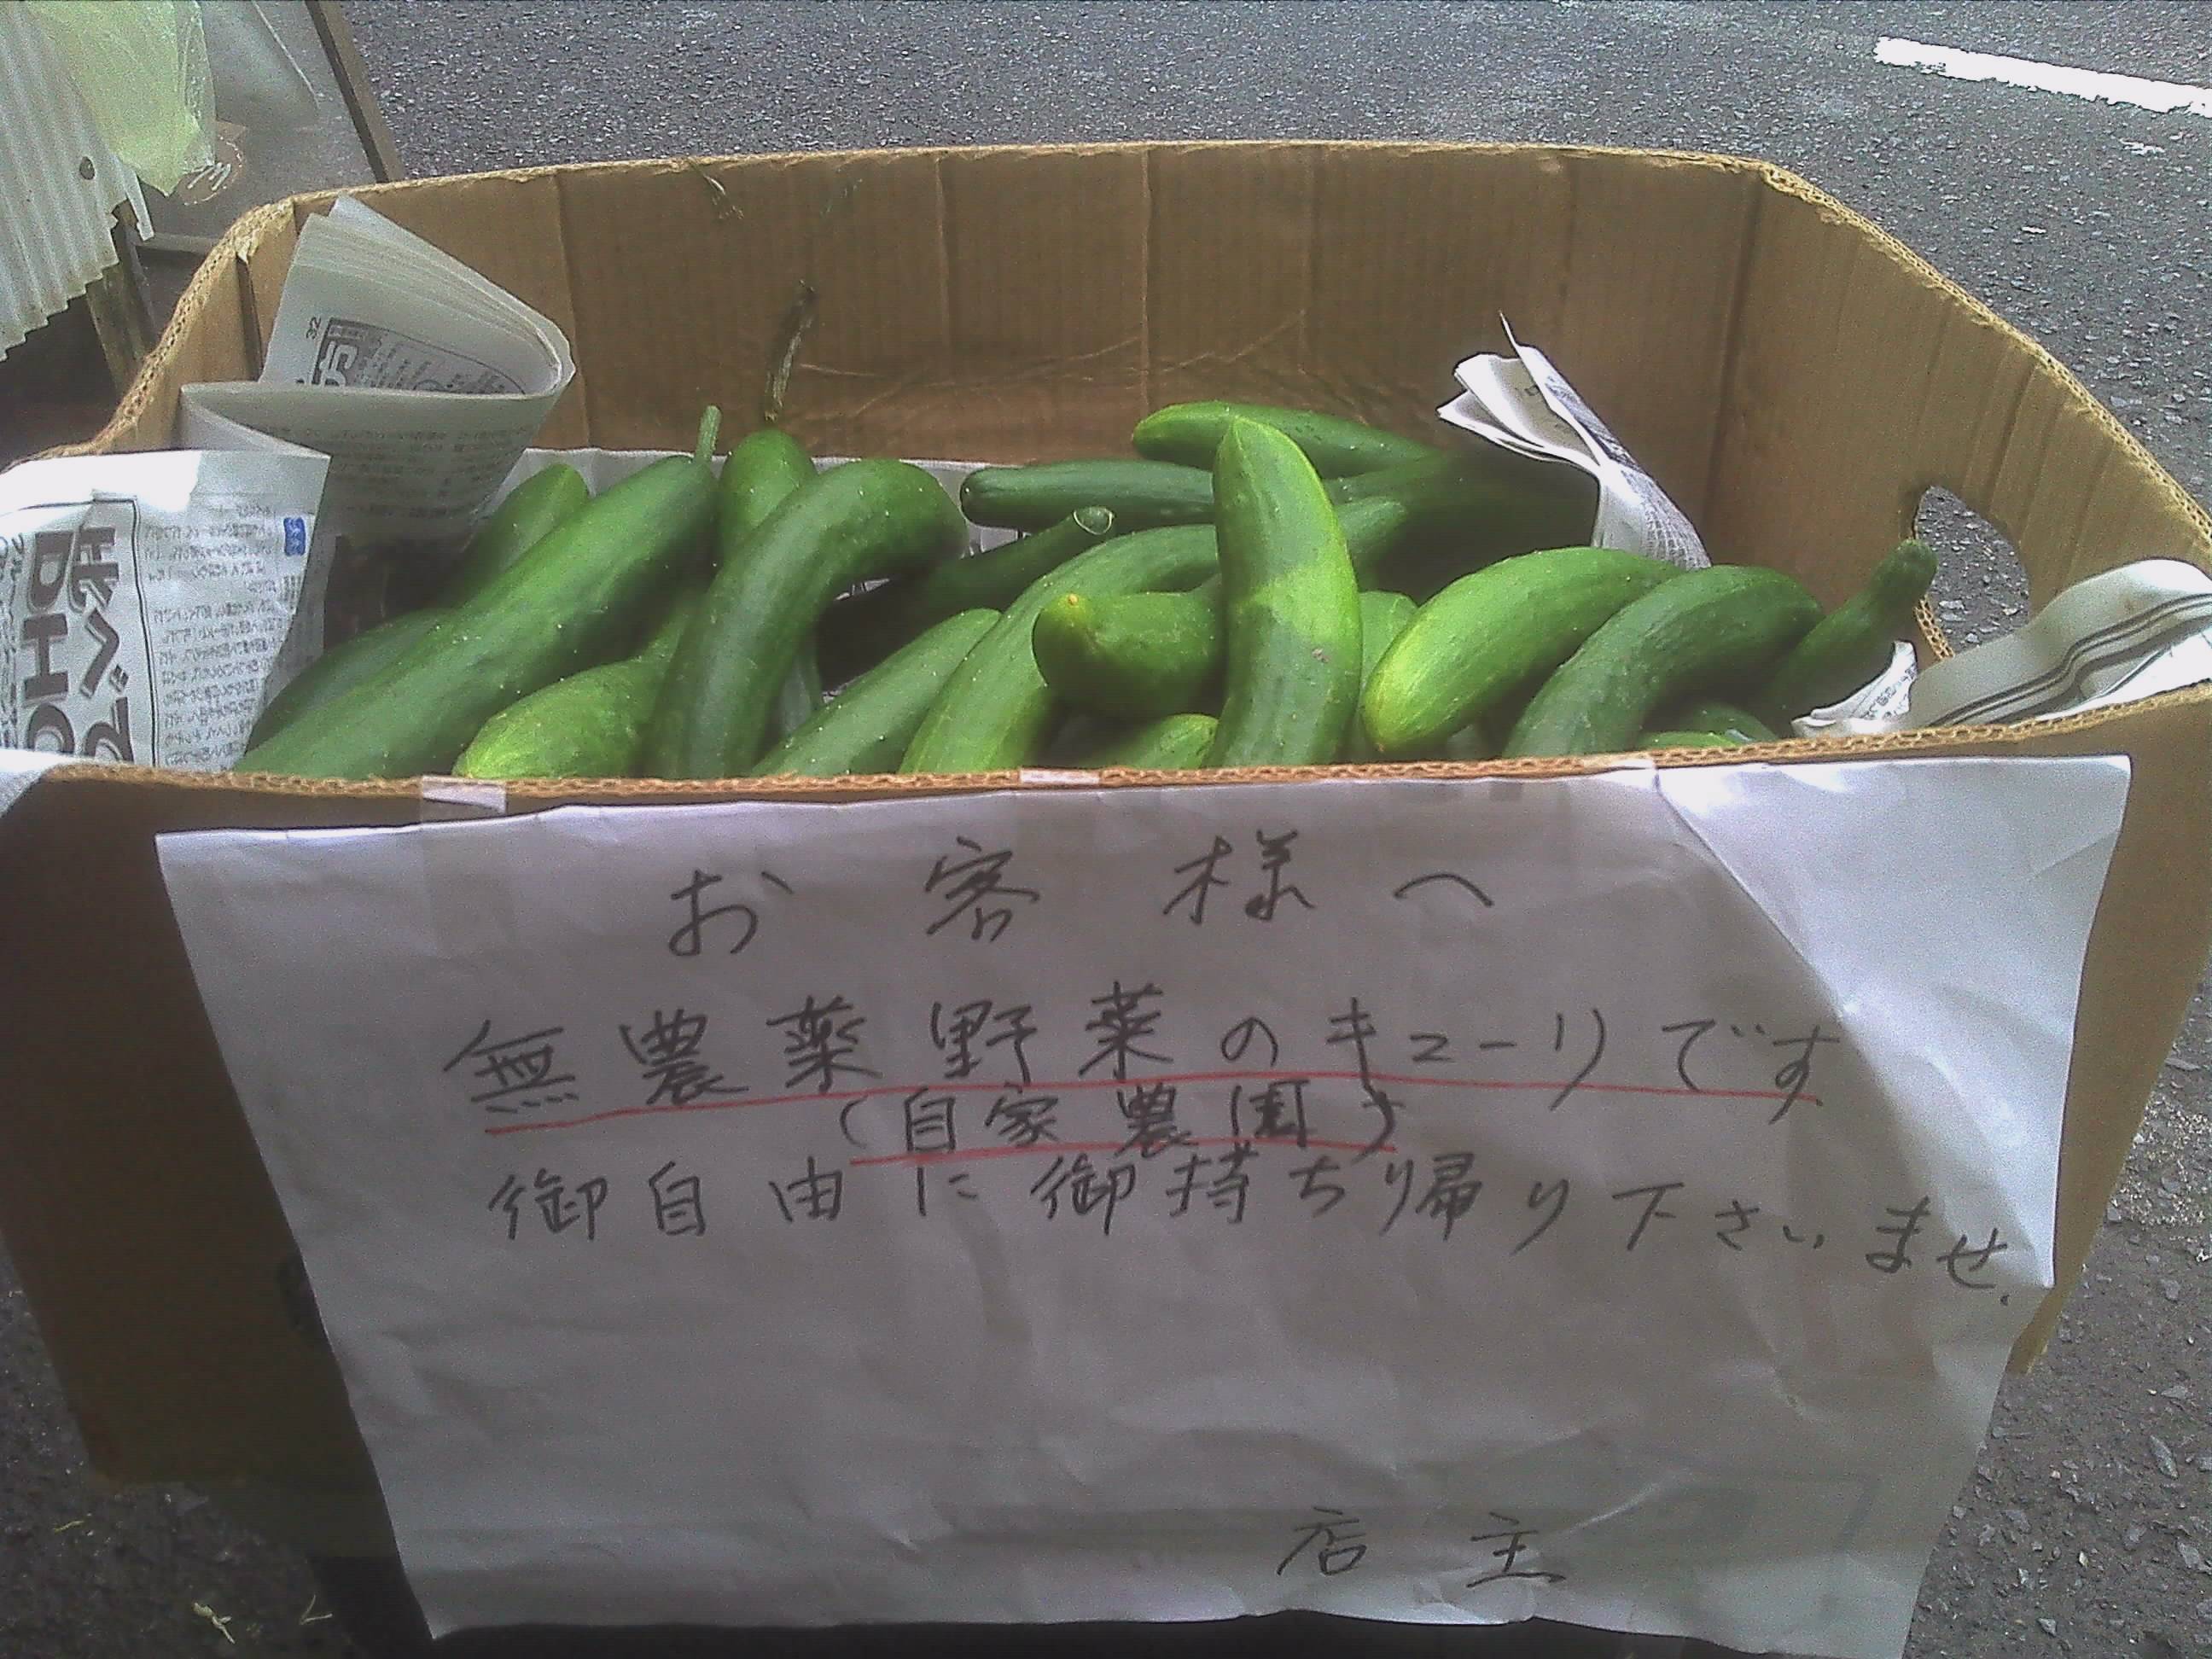 お客様へ
無農薬野菜のキューリです
(自家農園)
御自由に御持ち帰り下さいませ.
店主
32